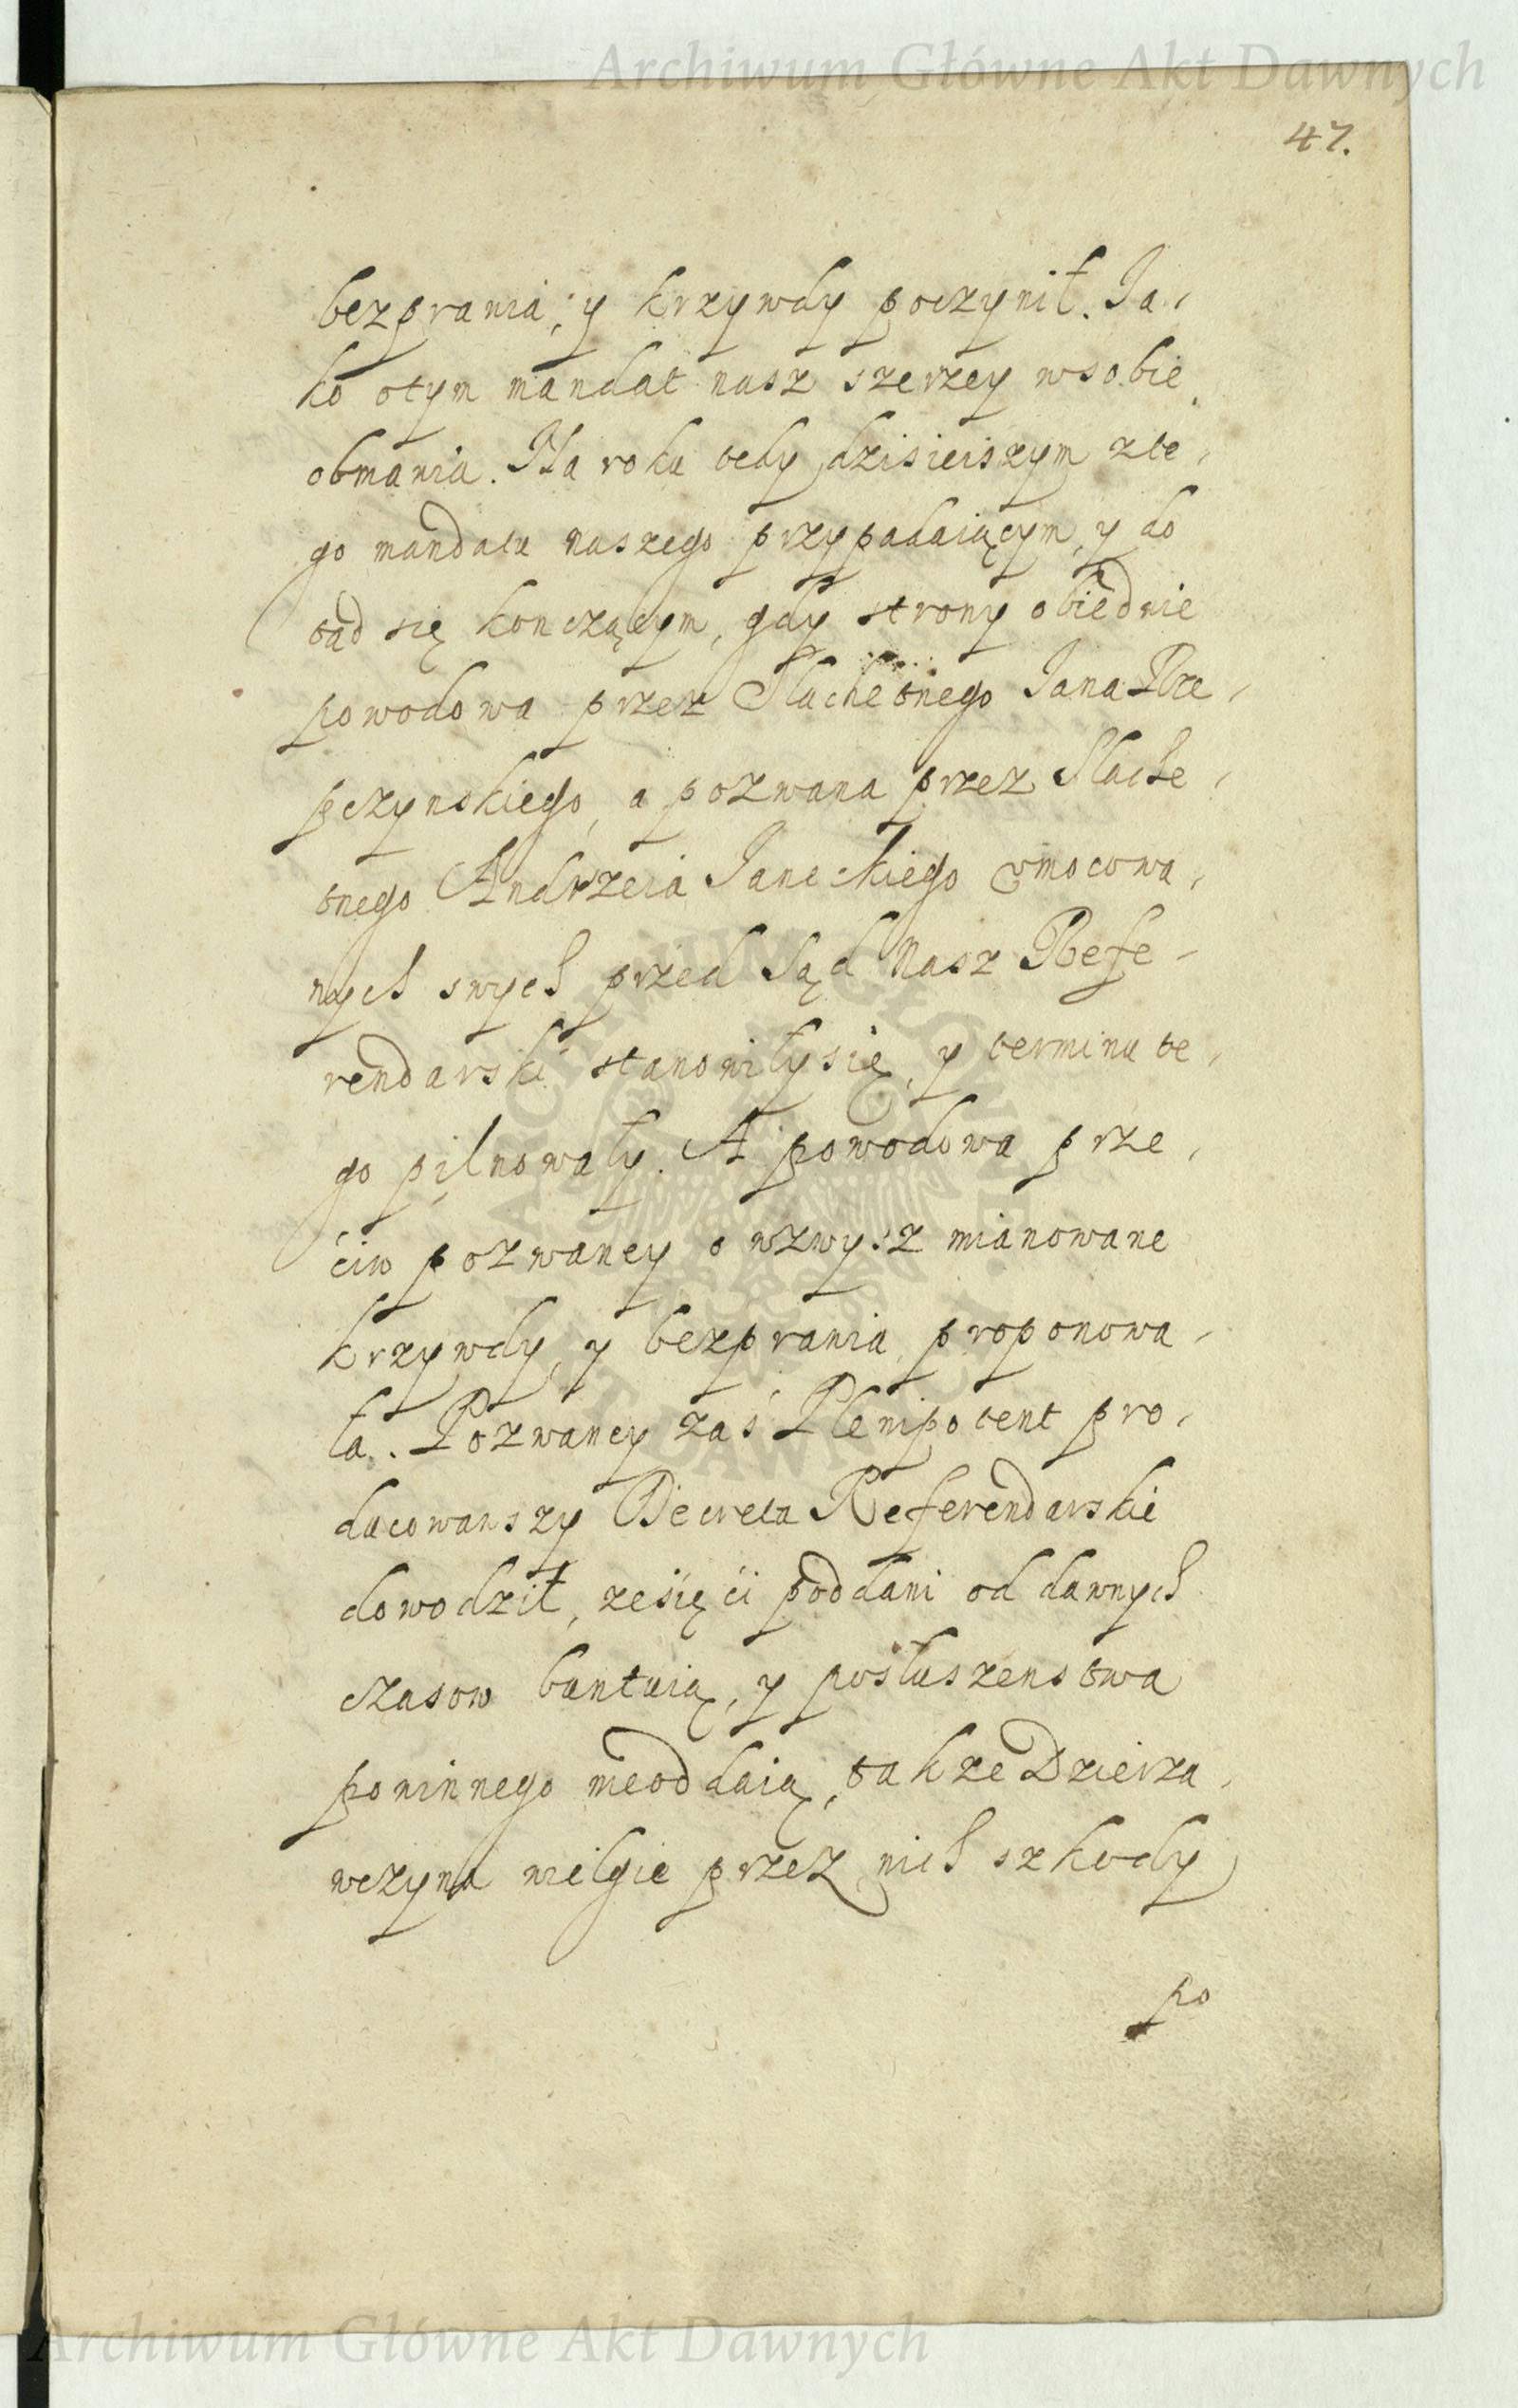 Archiwum Główne Akt Dawnych
47.
bezprawia, y krzywdy poczynił. Ia-
ko otym mandat nasz szerzey wsobie
obmawia. Na roku tedy dzisieiszym zte-
go mandatu naszego przypadaiącym, y do
tąd się kończącym, gdy strony obiedwie
powodowa przez Slachetnego Jana Rze-
pczynskiego, a pozwana przez Slache-
tnego Andrzeia Janeckiego vmocowa-
nych swych przed Sąd Nasz Refe-
rendarski stanowiły się, y terminu te-
go pilnowały. A powodowa prze-
ciw pozwaney o wzwysz mianowane
krzywdy, y bezprawia, proponowa-
ła. Pozwaney zaś Plenipotent pro-
ducowawszy Decreta Referendarskie
dowodził, zesię ci poddani od dawnych
czasow buntuią, y posłuszenstwa
powinnego nieoddaią, takze Dzierza-
wczyna wielgie przez nich szkody
po
Archiwum Główne Akt Dawnych